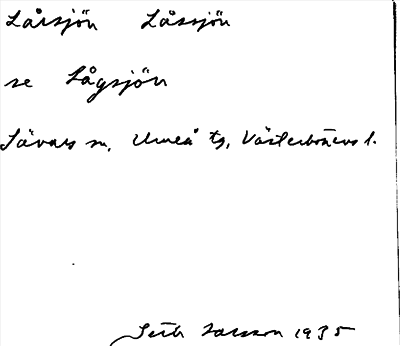 Lårsjön Låssjön
se Lågsjön
Sävars sn, Umeå tg, Västerbottens l.
Seth Larsson 1935